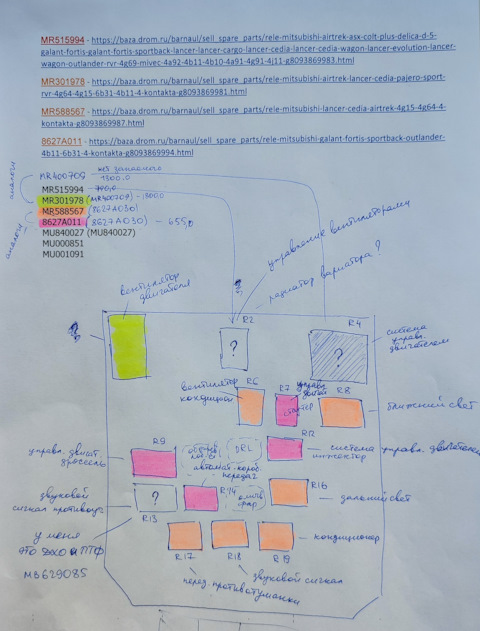 MR515994 - https://baza.drom.ru/barnaul/sell_spare_parts/rele-mitsubishi-airtrek-asx-colt-plus-delica-d-5-
galant-fortis-galant-fortis-sportback-lancer-lancer-cargo-lancer-cedia-lancer-cedia-wagon-lancer-evolution-lancer-
wagon-outlander-rvr-4g69-mivec-4a92-4b11-4b10-4a91-4g91-4j11-g8093869983.html
MR301978 - https://baza.drom.ru/barnaul/sell_spare_parts/rele-mitsubishi-airtrek-lancer-cedia-pajero-sport-
rvr-4g64-4g15-6b31-4b11-4-kontakta-g8093869981.html
MR588567 - https://baza.drom.ru/barnaul/sell_spare_parts/rele-mitsubishi-lancer-cedia-airtrek-4g15-4g64-4-
kontakta-g8093869987.html
8627A011 - https://baza.drom.ru/barnaul/sell_spare_parts/rele-mitsubishi-galant-fortis-sportback-outlander-
4b11-6b31-4-kontakta-g8093869994.html
аналоги
MR400709
1300.0
MR515994 - 700,0
MR301978 (MR400709) - 1300.0
MR588567 (8627A030)
аналоги
8627A011 (8627A030) - 655,0
MU840027 (MU840027)
MU000851
MU001091
управление вентиляторами
радиатор вариатора?
вентилятор
двигателя
R2
?
R4
?
система
управ. двигателем
вентилятор
кондицион
R6
R7
управ.
стартер
R8
ближний свет
R9
управ. двигат.
дроссель
DRL
R12
система управ. двигателем
инжектор
автомат. короб.
передач
звуковой
сигнал противоуг
?
R13
R14
R16
дальний свет
у меня
это ДХО и ПТФ
MB629085
R17
R18
R19
кондиционер
перед. противотуманки
звуковой сигнал